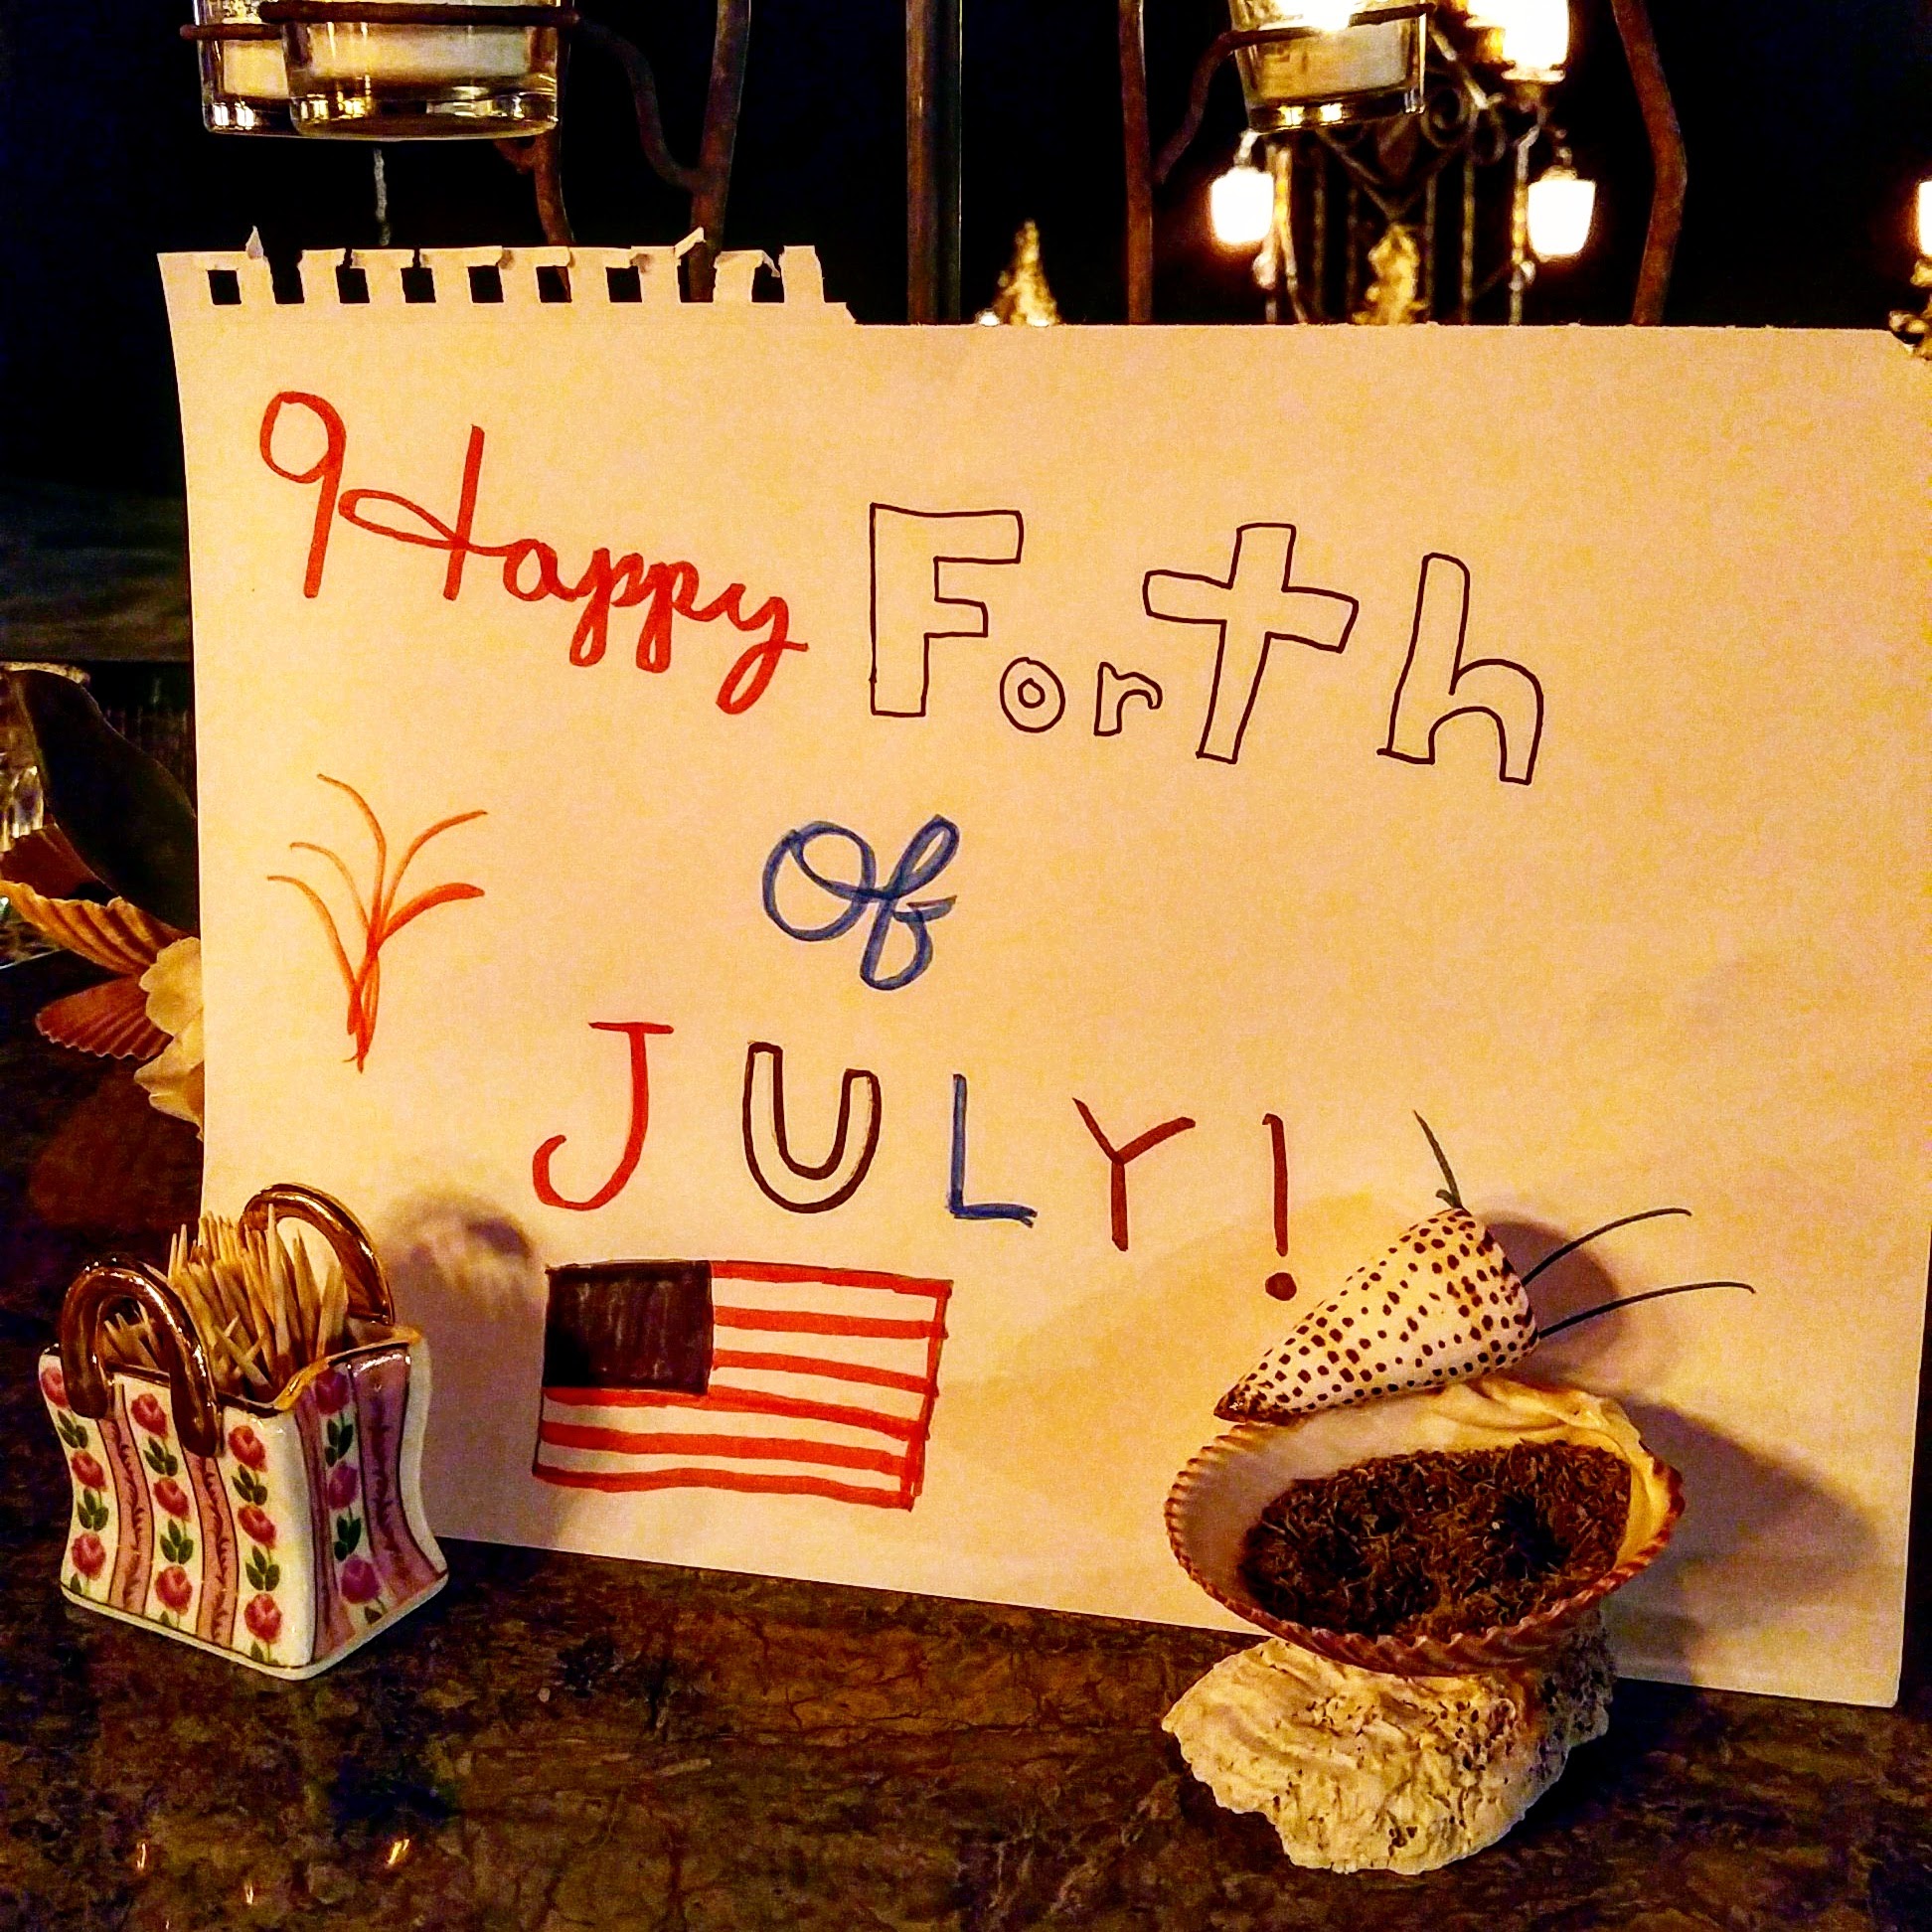 Happy Forth
Of
JULY!